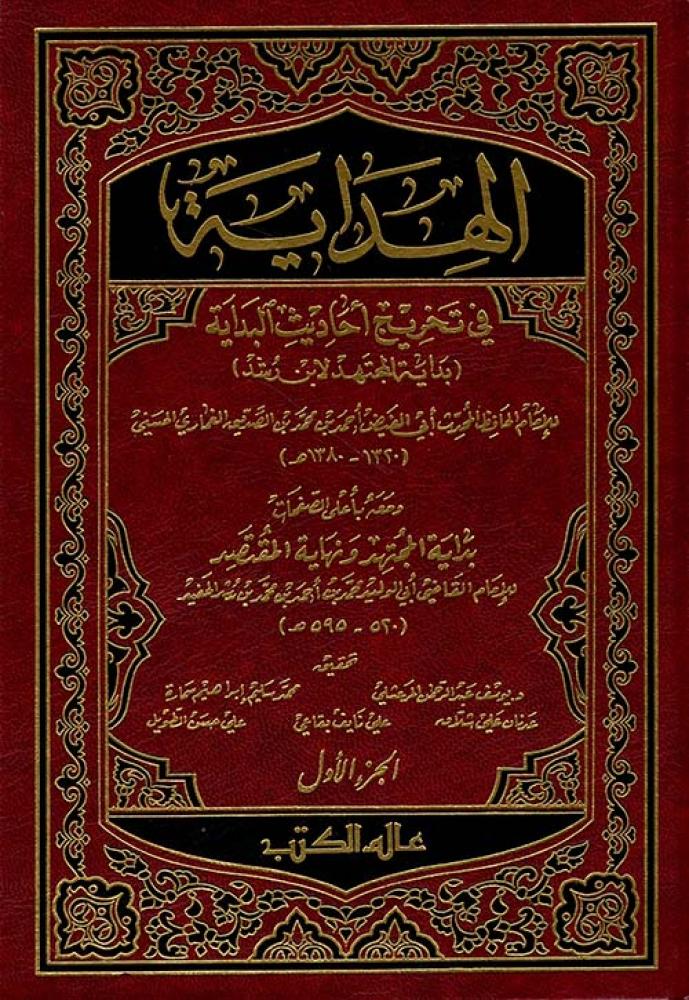 الهداية
في تخريج أحاديث البداية
(بداية المجتهد لابن رشد)
للإمام الحافظ المحدث أبي الفيض أحمد بن محمد بن الصديق الغماري الحسني
(١٣٢٠ - ١٣٨٠ هـ)
ومعه بأعلى الصفحات
بداية المجتهد ونهاية المقتصد
للإمام القاضي أبي الوليد محمد بن أحمد بن محمد بن رشد الحفيد
(٥٢٠ - ٥٩٥ هـ)
تحقيق
د. يوسف عبد الرحمن المرعشلي محمد سليم إبراهيم سمارة
عدنان علي شلاق علي نايف بقاعي علي حسن الطويل
الجزء الأول
عالم الكتب